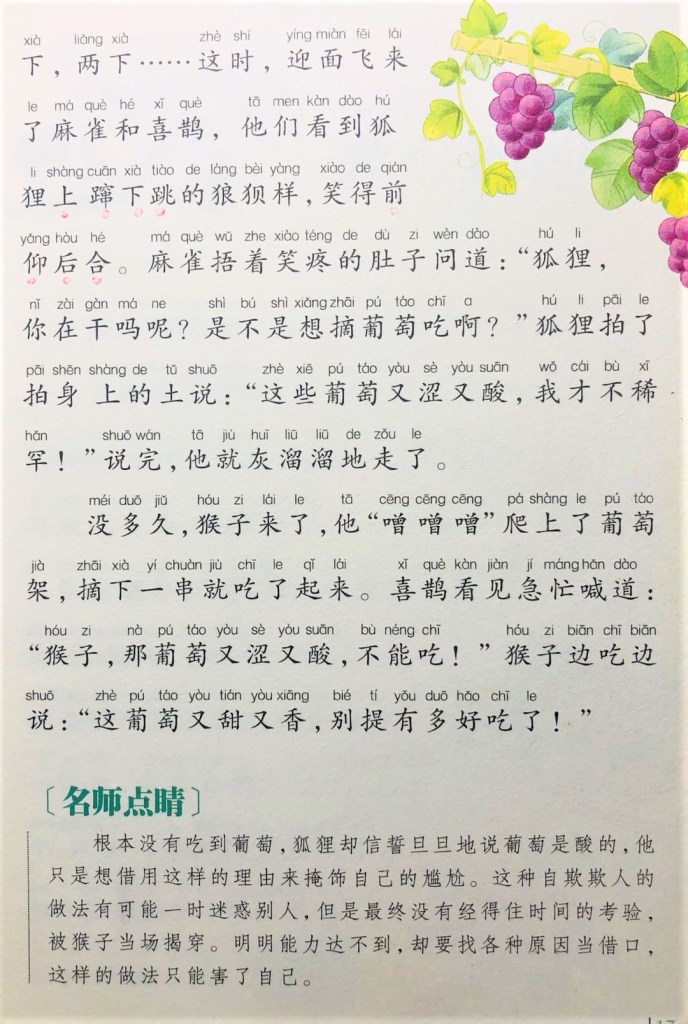 xià liǎng xià zhè shí yíng miàn fēi lái
下，两下……这时，迎面飞来
le má què hé xǐ què tā men kàn dào hú
了麻雀和喜鹊，他们看到狐
li shàng cuān xià tiào de láng bèi yàng xiào de qián
狸上蹿下跳的狼狈样，笑得前
yǎng hòu hé má què wǔ zhe xiào téng de dù zi wèn dào hú li
仰后合。麻雀捂着笑疼的肚子问道：“狐狸，
nǐ zài gàn má ne shì bú shì xiǎng zhāi pú táo chī a hú li pāi le
你在干吗呢？是不是想摘葡萄吃啊？”狐狸拍了
pāi shēn shàng de tǔ shuō zhè xiē pú táo yòu sè yòu suān wǒ cái bù xī
拍身上的土说：“这些葡萄又涩又酸，我才不稀
hǎn shuō wán tā jiù huī liū liū de zǒu le
罕！”说完，他就灰溜溜地走了。
méi duō jiǔ hóu zi lái le tā cēng cēng cēng pá shàng le pú táo
没多久，猴子来了，他“噌噌噌”爬上了葡萄
jià zhāi xià yí chuàn jiù chī le qǐ lái xǐ què kàn jiàn jí máng hǎn dào
架，摘下一串就吃了起来。喜鹊看见急忙喊道：
hóu zi nà pú táo yòu sè yòu suān bù néng chī hóu zi biān chī biān
“猴子，那葡萄又涩又酸，不能吃！”猴子边吃边
shuō zhè pú táo yòu tián yòu xiāng bié tí yǒu duō hǎo chī le
说：“这葡萄又甜又香，别提有多好吃了！”
〔名师点睛〕
根本没有吃到葡萄，狐狸却信誓旦旦地说葡萄是酸的，他
只是想借用这样的理由来掩饰自己的尴尬。这种自欺欺人的
做法有可能一时迷惑别人，但是最终没有经得住时间的考验，
被猴子当场揭穿。明明能力达不到，却要找各种原因当借口，
这样的做法只能害了自己。